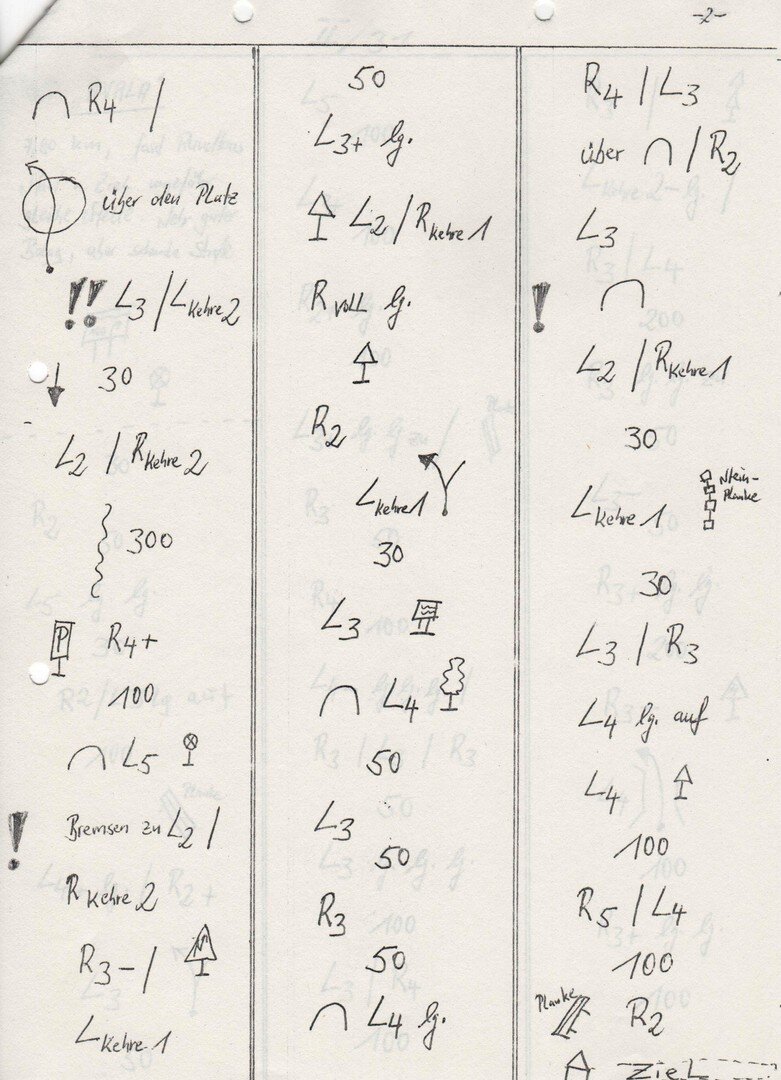 -2-
R4 /
über den Platz
!! L3 / LKehre2
30
L2 / RKehre2
300
P R4+
100
L5
! Bremsen zu L2 /
RKehre2
R3- /
LKehre1
50
L3+ lg.
L2 / RKehre1
RVOLL lg.
R2
LKehre1
30
L3
L4
50
L3
50
R3
50
L4 lg.
R4 / L3
über ∩ / R2
L3
!
L2 / RKehre1
30
LKehre1 Stein-
Planke
30
L3 / R3
L4 lg. auf
L4
100
R5 / L4
100
Planke R2
ZIEL